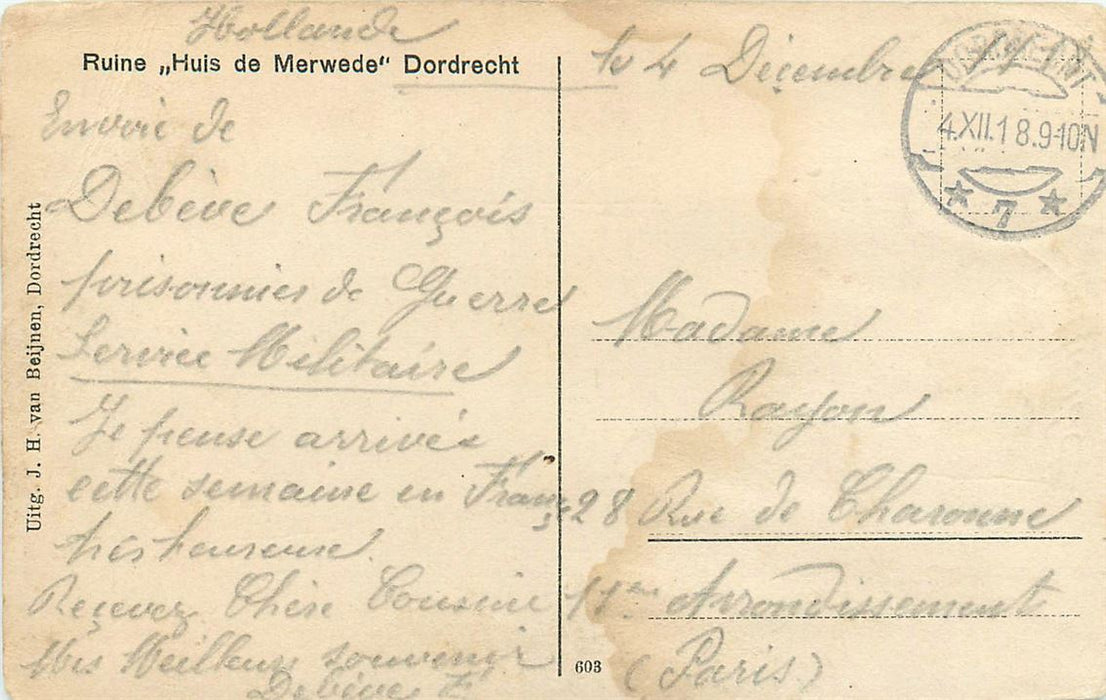 Hollande
Ruine „Huis de Merwede" Dordrecht
le 4 Décembre
DORDRECHT
4.XII.18.9-10N
7
Envoie de
Debève François
prisonnier de Guerre
Service Militaire
Je pense arrivée
cette semaine en France
très heureuse
Reçevez Chère Cousine
Mes Meilleurs souvenir
Debève F
Uitg. J. H. van Beijnen, Dordrecht
Madame
Rayon
28 Rue de Charonne
11me Arrondissement
(Paris)
603